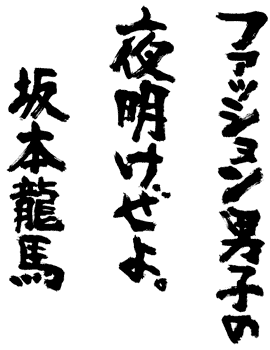 ファッション男子の
夜明けぜよ。
坂本龍馬